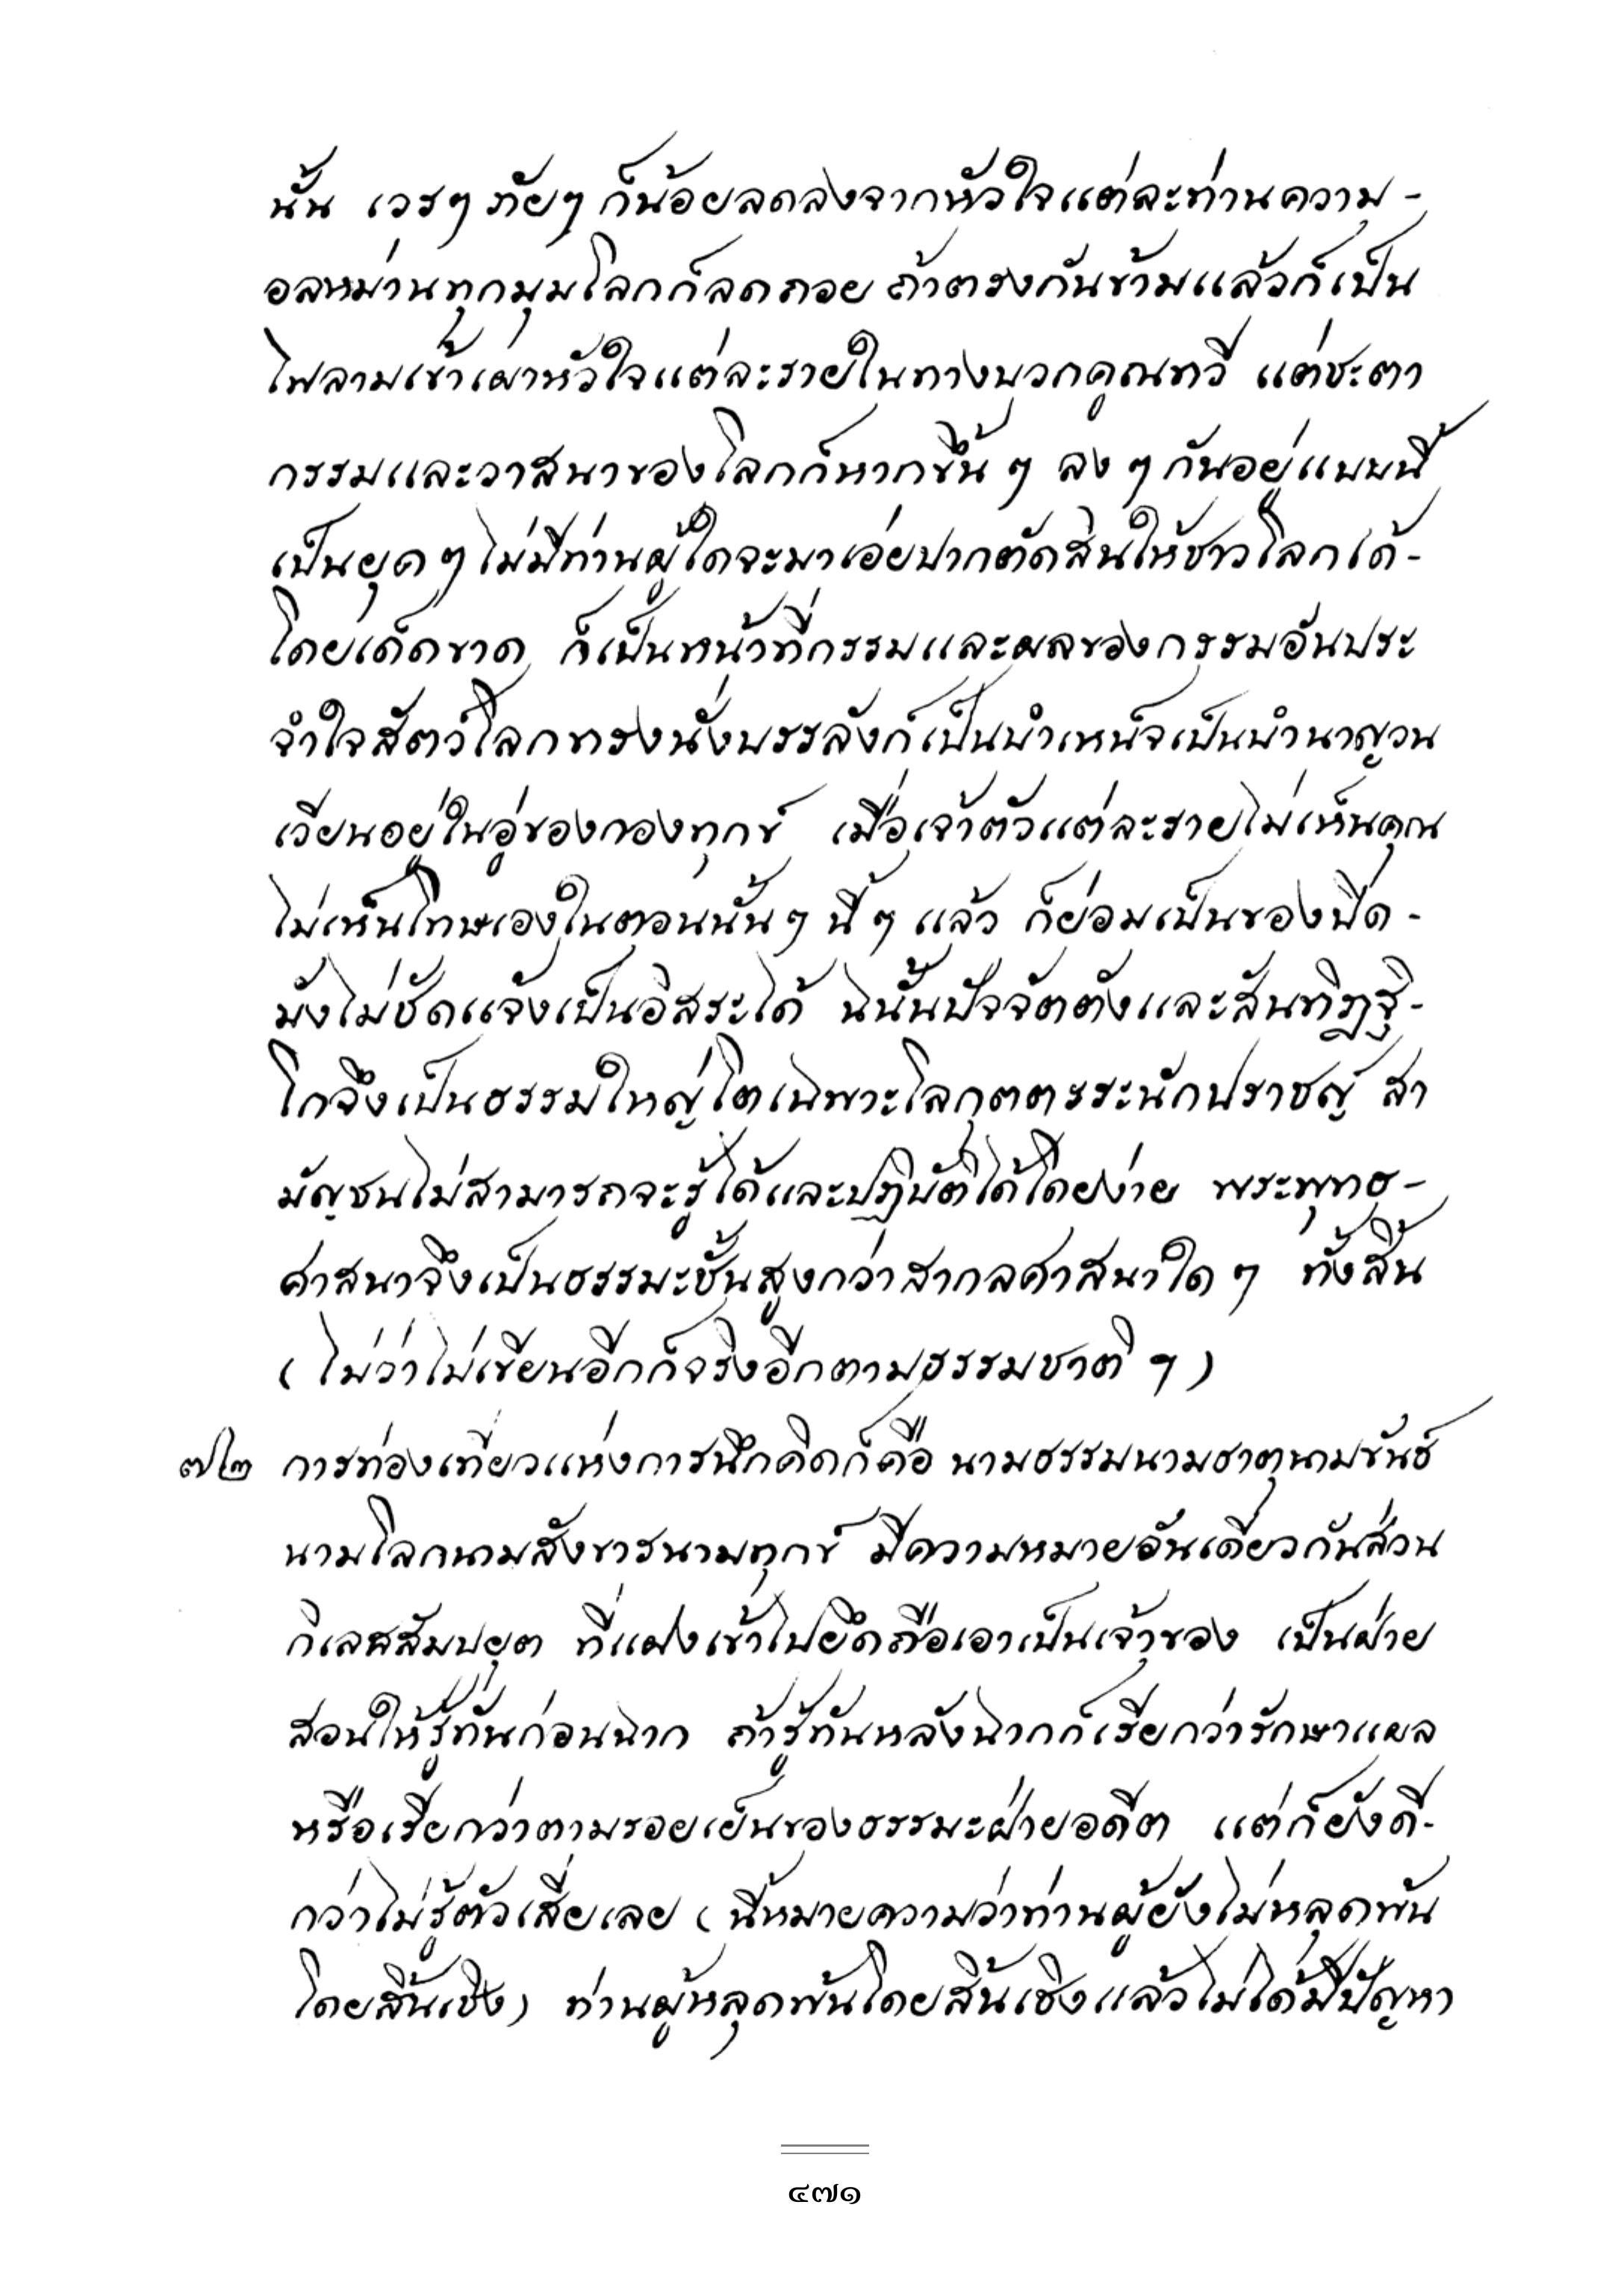 นั้น เวรๆ ภัยๆ ก็น้อยลดลงจากหัวใจแต่ละท่านความ -
อลหม่านทุกมุมโลกก็ลดถอย ถ้าตรงกันข้ามแล้วก็เป็น
ไฟลามเข้าเผาหัวใจแต่ละรายในทางบวกคูณทวี แต่ชะตา
กรรมและวาสนาของโลกก็หากขึ้น ๆ ลง ๆ กันอยู่แบบนี้
เป็นยุค ๆ ไม่มีท่านผู้ใดจะมาเอ่ยปากตัดสินให้ชาวโลกได้ -
โดยเด็ดขาด ก็เป็นหน้าที่กรรมและผลของกรรมอันประ
จำใจสัตว์โลกทรงนั่งบรรลังก์เป็นบำเหน็จเป็นบำนาญวน
เวียนอยู่ในอู่ของกองทุกข์ เมื่อเจ้าตัวแต่ละรายไม่เห็นคุณ
ไม่เห็นโทษเองในตอนนั้นๆ นี้ ๆ แล้ว ก็ย่อมเป็นของปิด -
มังไม่ชัดแจ้งเป็นอิสระได้ ฉนั้นปัจจัตตังและสันทิฏฐิ -
โกจึงเป็นธรรมใหญ่โตเฉพาะโลกุตตรระนักปราชญ์ สา
มัญชนไม่สามารถจะรู้ได้และปฏิบัติได้โดยง่าย พระพุทธ -
ศาสนาจึงเป็นธรรมะชั้นสูงกว่าสากลศาสนาใด ๆ ทั้งสิ้น
( ไม่ว่าไม่เขียนอีกก็จริงอีกตามธรรมชาติ ฯ )
๗๒ การท่องเที่ยวแห่งการนึกคิดก็คือ นามธรรมนามธาตุนามขันธ์
นามโลกนามสังขารนามทุกข์ มีความหมายอันเดียวกันส่วน
กิเลสสัมปยุต ที่แฝงเข้าไปยึดถือเอาเป็นเจ้าของ เป็นฝ่าย
สอนให้รู้ทันก่อนฉาก ถ้ารู้ทันหลังฉากก็เรียกว่ารักษาแผล
หรือเรียกว่าตามรอยเย็นของธรรมะฝ่ายอดีต แต่ก็ยังดี -
กว่าไม่รู้ตัวเสียเลย ( นี้หมายความว่าท่านผู้ยังไม่หลุดพ้น
โดยสิ้นเชิง) ท่านผู้หลุดพ้นโดยสิ้นเชิงแล้วไม่ได้มีปัญหา
๔๗๑